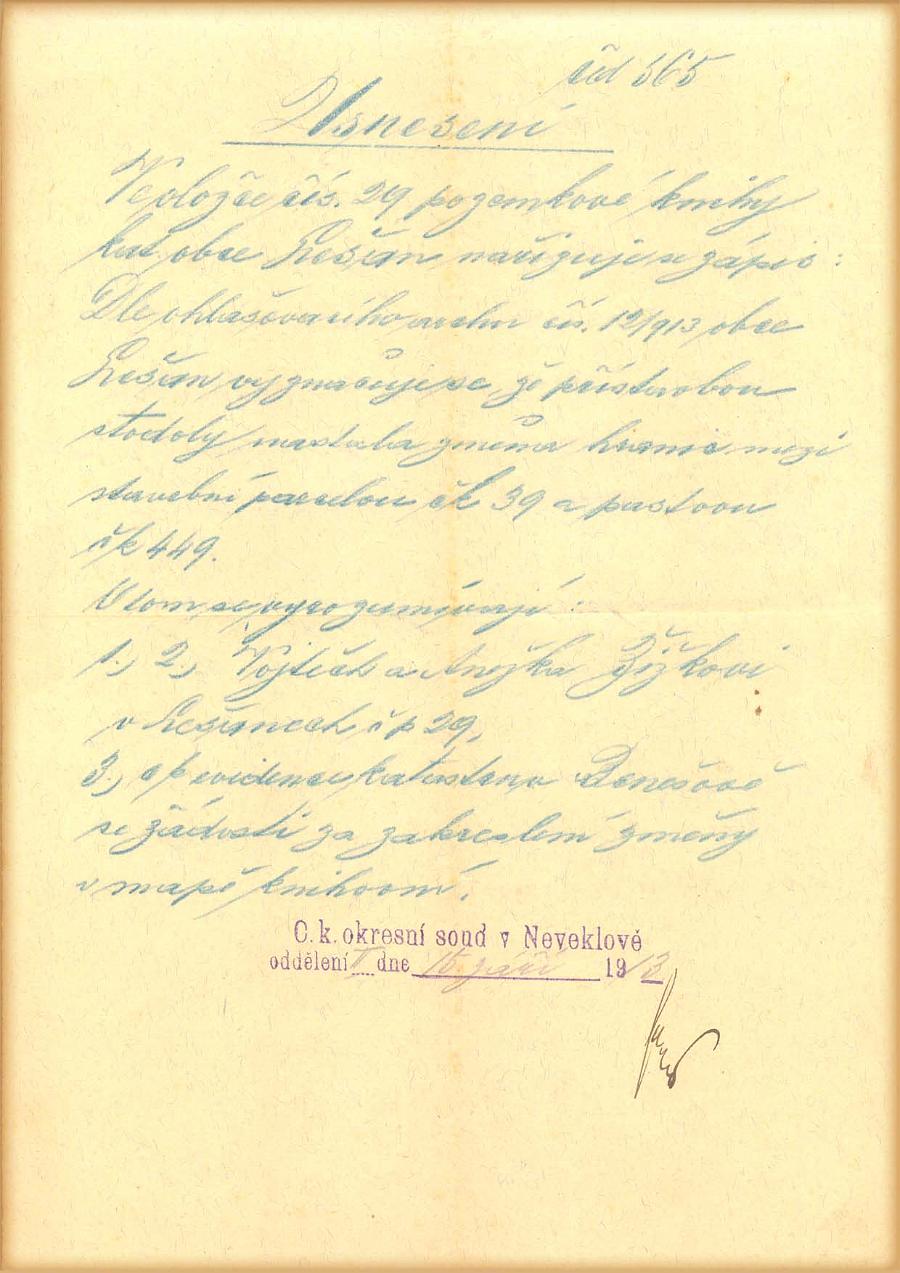 čd 565
Usnesení
Ve vložce čís. 29 pozemkové knihy
kat. obce Lešan nařizuje se zápis:
Dle ohlašovacího archu čís. 12/913 obce
Lešan vyznačuje se, že přístavbou
stodoly nastala změna hranic mezi
stavební parcelou čk 39 a pastvou
čk 449.
O tom se vyrozumívají:
1., 2., Vojtěch a Anežka Žižkovi
v Lešanech čp 29,
3., evidence katastru v Benešově
se žádostí za zakreslení změny
v mapě knihovní.
C. k. okresní soud v Neveklově
oddělení I dne 15. září 1913